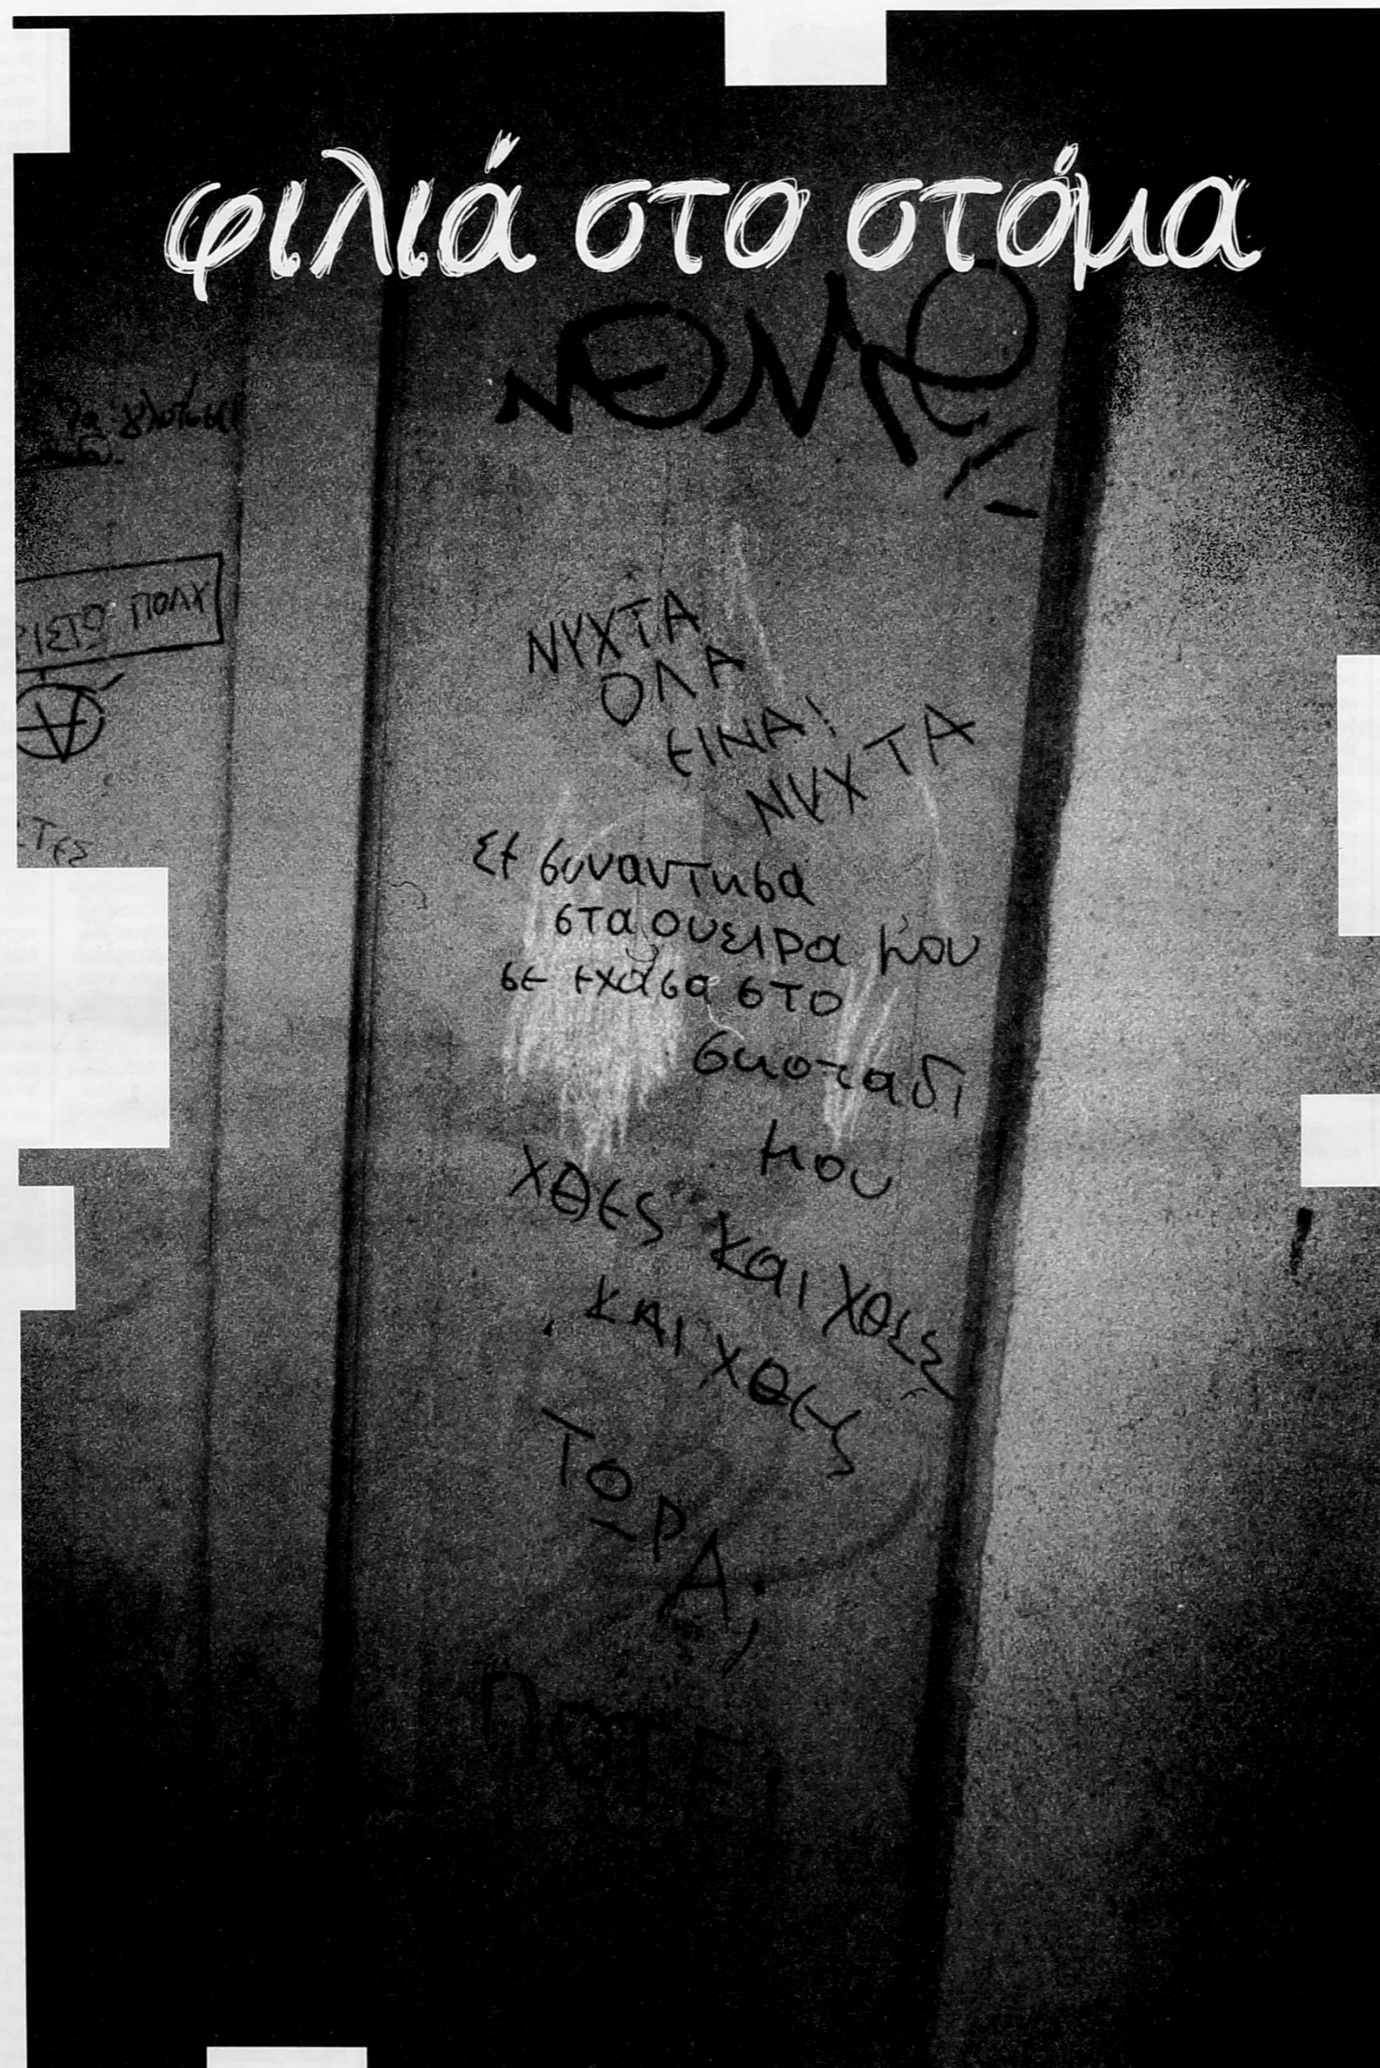 φιλιά στο στόμα
ΝΥΧΤΑ
ΟΛΑ
ΕΙΝΑΙ
ΝΥΧΤΑ
Σε συναντησα
στα ονειρα μου
σε εχασα στο
σκοταδι
μου
χθες και χθες
και χθες
ΤΟΡΑ;
ΠΟΤΕ;
ΠΟΛΥ